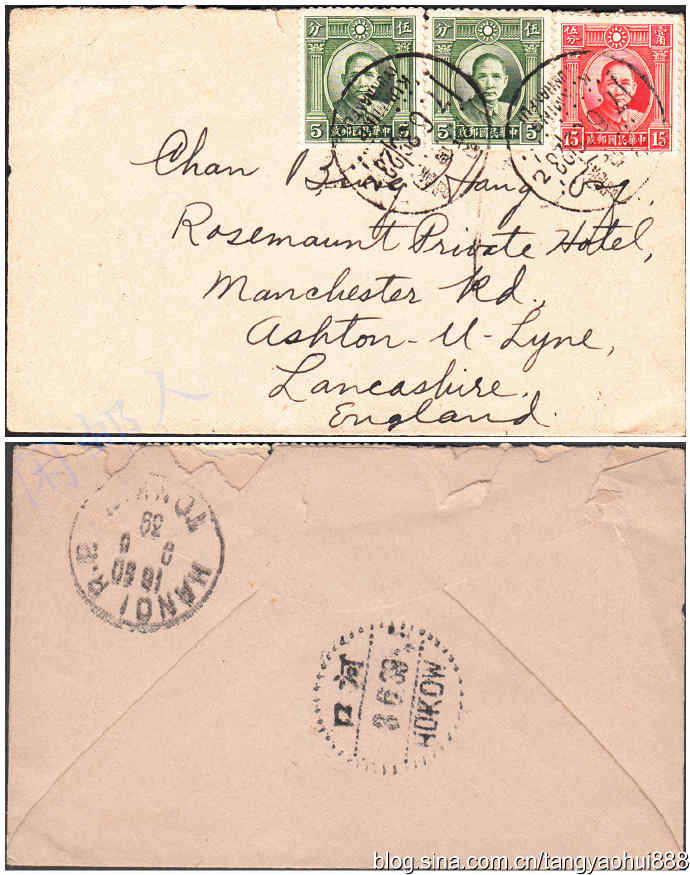 伍分
5 中華民國郵政 5
伍分
5 中華民國郵政 5
壹角伍分
15 中華民國郵政 15
Chan Bing Hang
Rosemaunt Private Hotel,
Manchester Rd.,
Ashton-U-Lyne,
Lancashire.
England.
HANOI R.P.
河口
HOKOW
blog.sina.com.cn/tangyaohui888